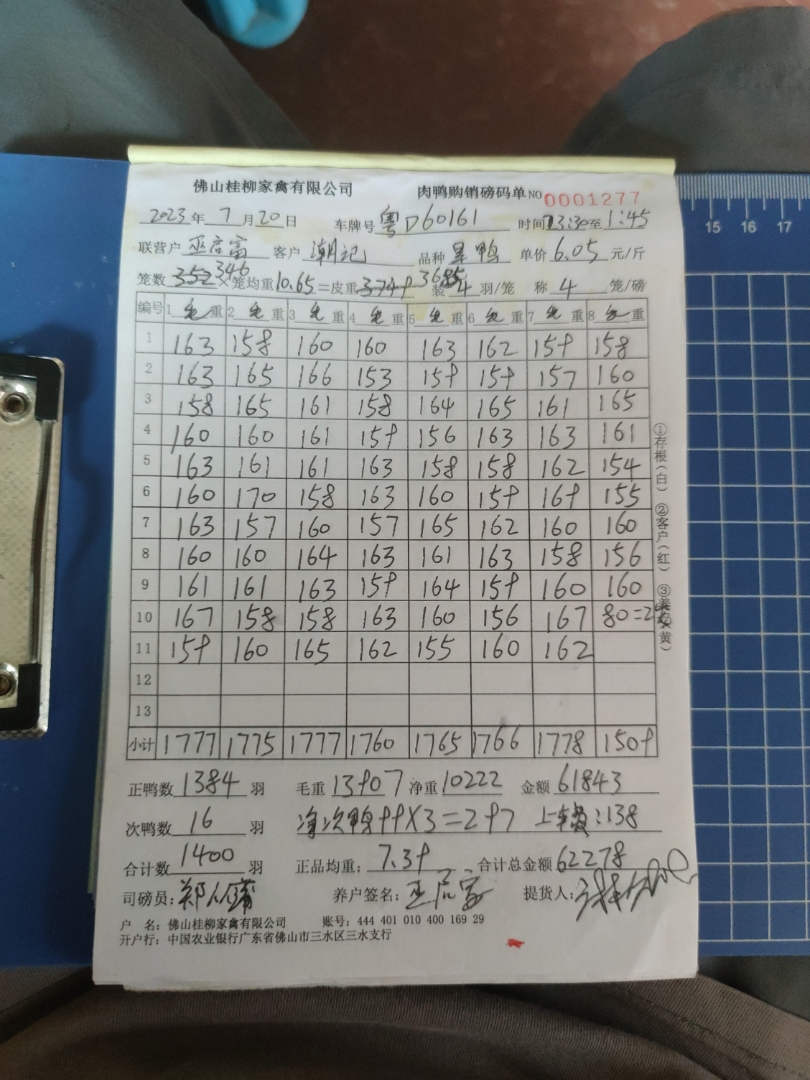 佛山桂柳家禽有限公司 肉鸭购销磅码单 NO 0001277
2023年 7月20日 车牌号 粤D60161 时间13:30至1:45
联营户 巫启富 客户 潮记 品种 鸭 单价 6.05 元/斤
笼数 352 346 ×笼均重10.65=皮重 3749 3685 装 4 羽/笼 称 4 笼/磅
编号 1 毛 重 2 毛 重 3 毛 重 4 毛 重 5 毛 重 6 毛 重 7 毛 重 8 毛 重
1 163 158 160 160 163 162 159 158
2 163 165 166 153 159 159 157 160
3 158 165 161 158 164 165 161 165
4 160 160 161 159 156 163 163 161
5 163 161 161 163 158 158 162 154
6 160 170 158 163 160 159 169 155
7 163 157 160 157 165 162 160 160
8 160 160 164 163 161 163 158 156
9 161 161 163 159 164 159 160 160
10 167 158 158 163 160 156 167 80=2
11 159 160 165 162 155 160 162
12
13
小计 1777 1775 1777 1760 1765 1766 1778 1509
①存根(白) ②客户(红) ③养户(黄)
正鸭数 1384 羽 毛重 13907 净重 10222 金额 61843
次鸭数 16 羽 次鸭 99X3=297 上车费:138
合计数 1400 羽 正品均重: 7.39 合计总金额 62278
司磅员: 郑 养户签名: 巫启富 提货人:
户 名: 佛山桂柳家禽有限公司 账号: 444 401 010 400 169 29
开户行: 中国农业银行广东省佛山市三水区三水支行
15 16 17